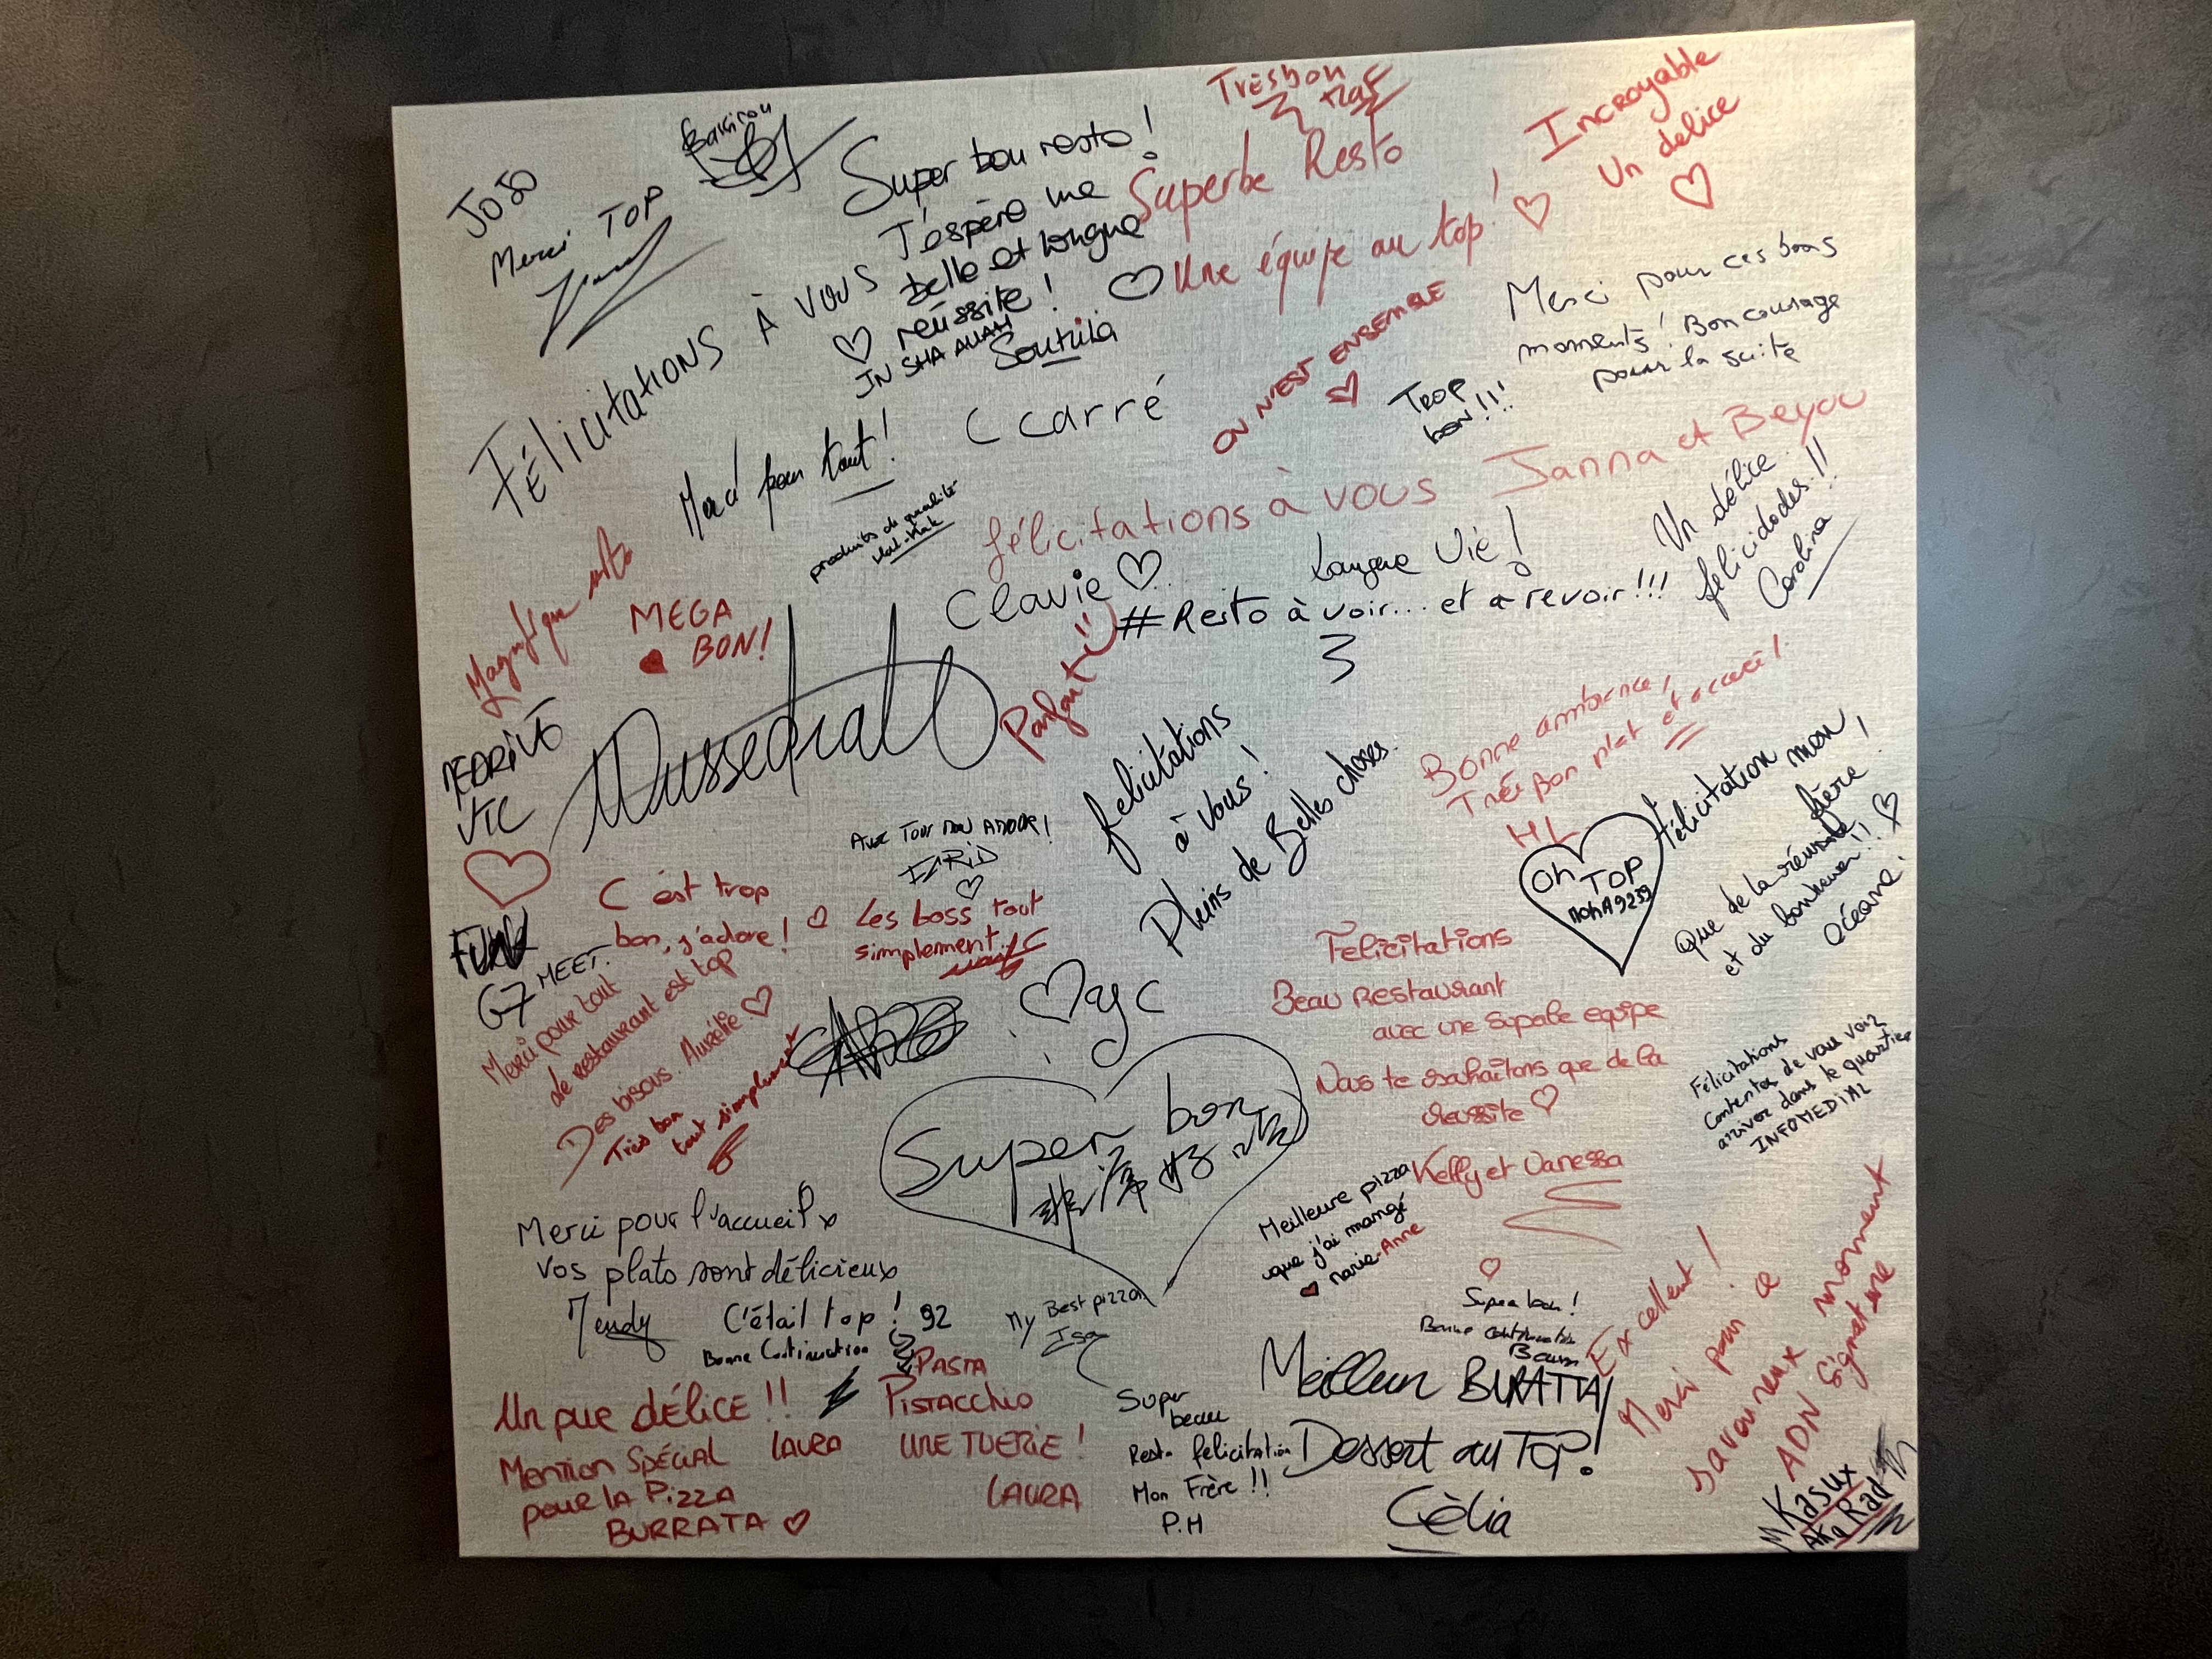 JOJO
Merci TOP
Bakirou
Super bon resto !
J'espère une
belle et longue
réussite !
IN SHA ALLAH
Félicitations À vous
Très bon
Superbe Resto
Une équipe au top !
Incroyable
Un delice
Merci pour ces bons
moments ! Bon courage
pour la suite
ON N'EST ENSEMBLE
TROP
bon !!!
C carré
Merci pour tout !
produits de qualité
félicitations à vous Janna et Beyou
Clavie
Longue Vie !
#Resto à voir... et a revoir !!!
Un délice
felicidades !!
Carolina
Magnifique resto
MEGA
BON !
Parfait
VTC
felicitations
à vous !
Pleins de Belles choses.
Bonne ambiance,
Très Bon plat et accueil.
HL
Oh
TOP
MOHA9259
félicitation mon
frère
que de la réussite
et du bonheur !!
Océane.
C'est trop
bon, j'adore !
Les boss tout
simplement
G7 MEET.
Merci pour tout
le restaurant est top
Des bisous. Aurélie
Très bon
tout simplement
Felicitations
Beau Restaurant
avec une superbe equipe
Nous te souhaitons que de la
reussite
Kelly et Vanessa
Félicitations
Contentes de vous voir
arriver dans le quartier
INFOMEDIAL
Super bon
非常好吃
Meilleure pizza
que j'ai mangé
Marie-Anne
Merci pour l'accueil
vos plats sont délicieux
Mendy
C'était top ! 92
Bonne Continuation
My Best pizza
Isa
Super bon !
Bonne continuation
Un pur DÉLICE !!
Mention SPÉCIAL LAURA
pour LA Pizza
BURRATA
PASTA
PISTACCHIO
UNE TUERIE !
LAURA
Super
beau
Resto felicitation
Mon Frère !!
P.H
Meilleur BURATTA !
Dessert au TOP !
Célia
Excellent !
Merci pour ce
savoureux moment
ADN Signature
Kasux
AKA Rad